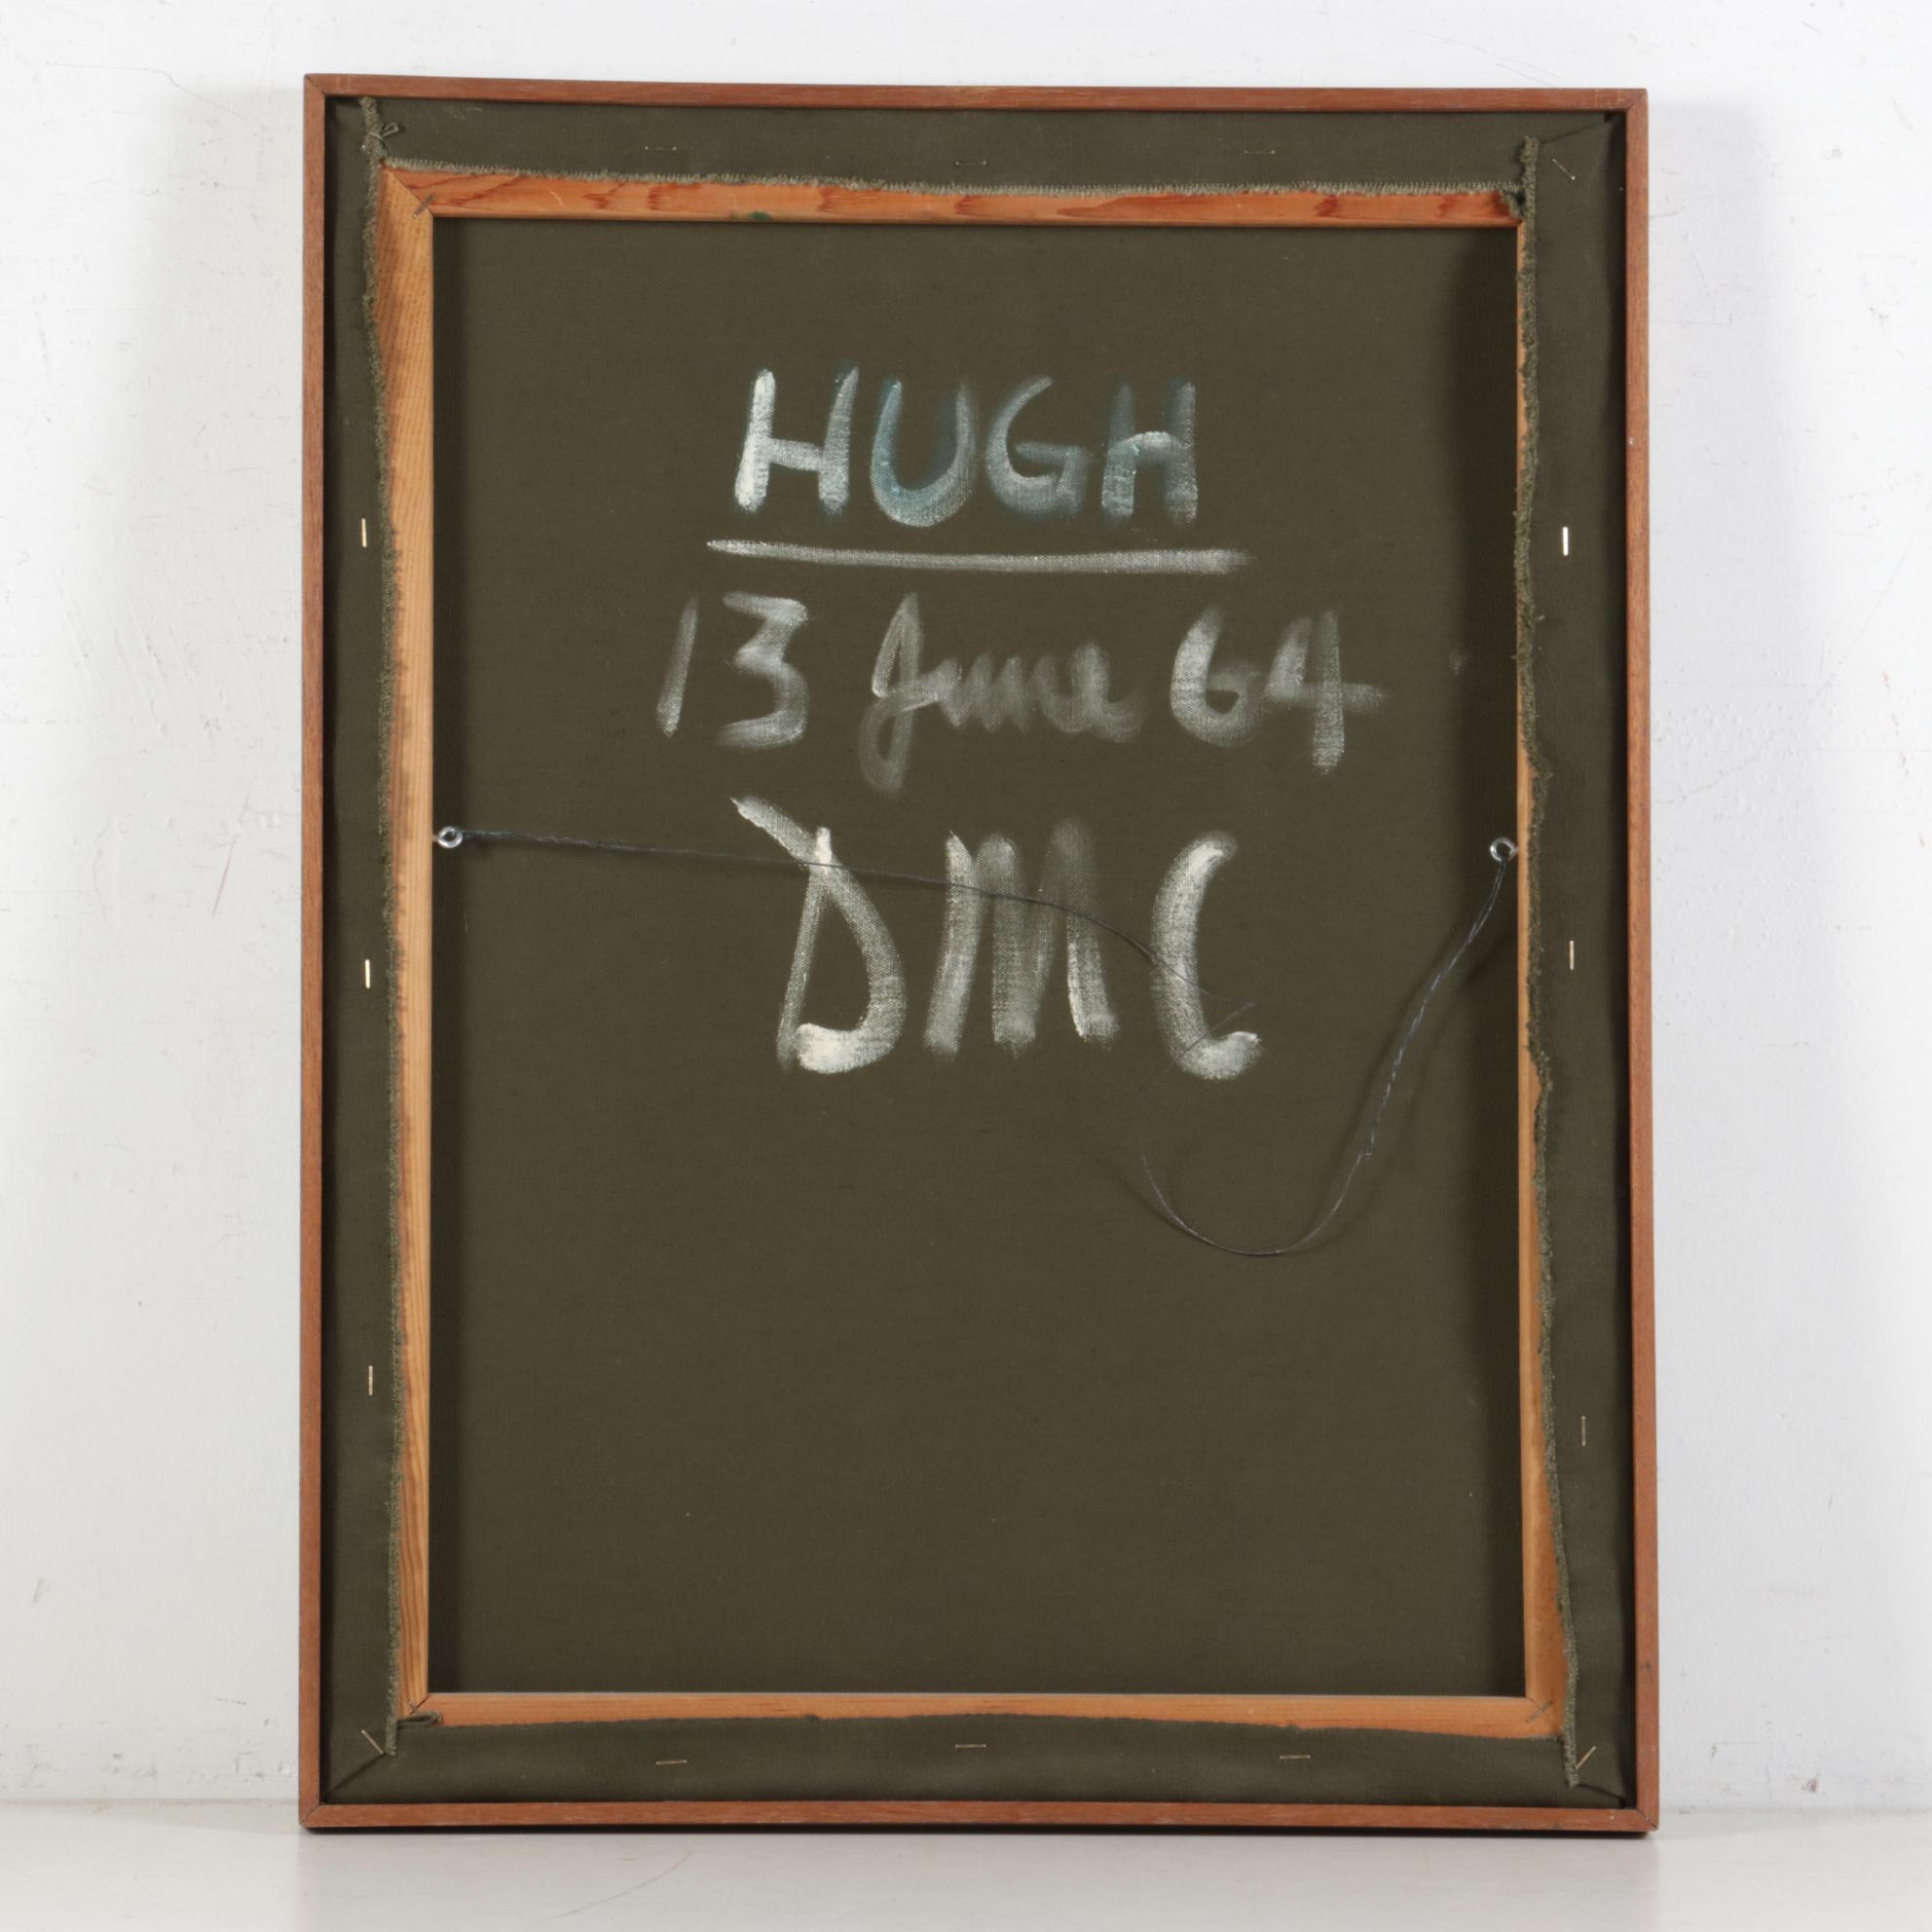 HUGH
13 June 64
DMC